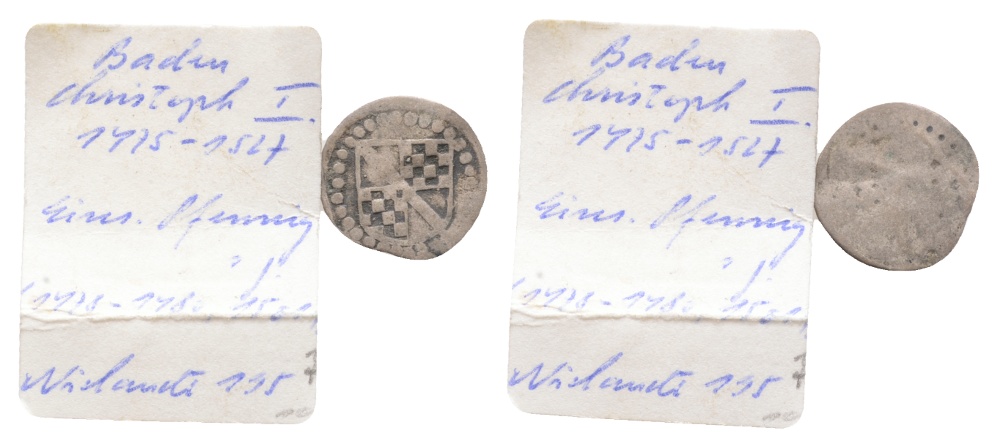 Baden
Christoph I.
1475-1527
Eins. Pfennig
Wielandt 195
Baden
Christoph I.
1475-1527
Eins. Pfennig
Wielandt 195